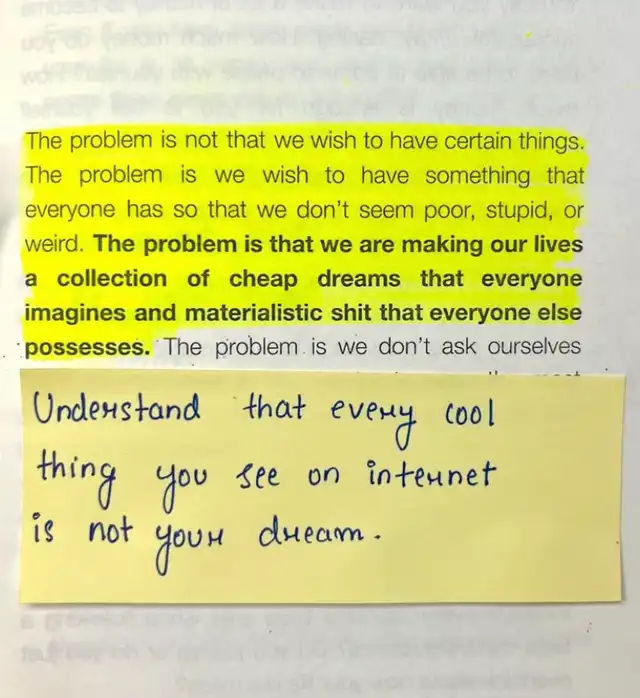 The problem is not that we wish to have certain things.
The problem is we wish to have something that
everyone has so that we don't seem poor, stupid, or
weird. The problem is that we are making our lives
a collection of cheap dreams that everyone
imagines and materialistic shit that everyone else
possesses. The problem is we don't ask ourselves
Understand that every cool
thing you see on internet
is not your dream.